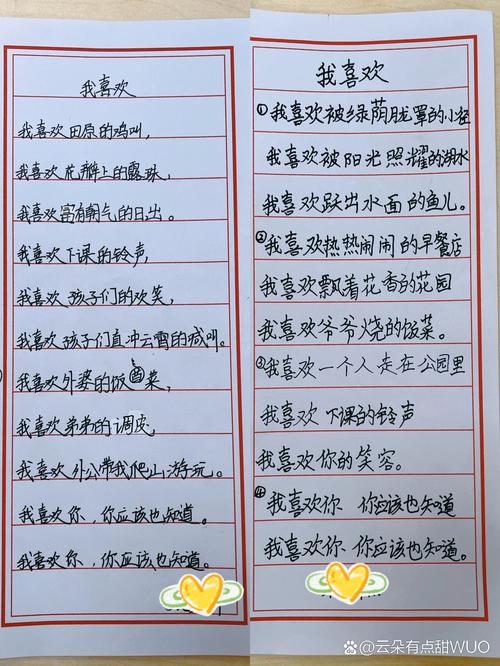 我喜欢
我喜欢田原的鸡叫，
我喜欢花瓣上的露珠，
我喜欢富有朝气的日出。
我喜欢下课的铃声，
我喜欢孩子们的欢笑，
我喜欢孩子们直冲云霄的喊叫。
我喜欢外婆的饭菜，
我喜欢弟弟的调皮，
我喜欢外公带我爬山游玩。
我喜欢你，你应该也知道。
我喜欢你，你应该也知道。
我喜欢
①我喜欢被绿荫胧罩的小径
我喜欢被阳光照耀的湖水
我喜欢跃出水面的鱼儿。
②我喜欢热热闹闹的早餐店
我喜欢飘着花香的花园
我喜欢爷爷烧的饭菜。
③我喜欢一个人走在公园里
我喜欢下课的铃声
我喜欢你的笑容。
④我喜欢你、你应该也知道
我喜欢你、你应该也知道。
@云朵有点甜WUO